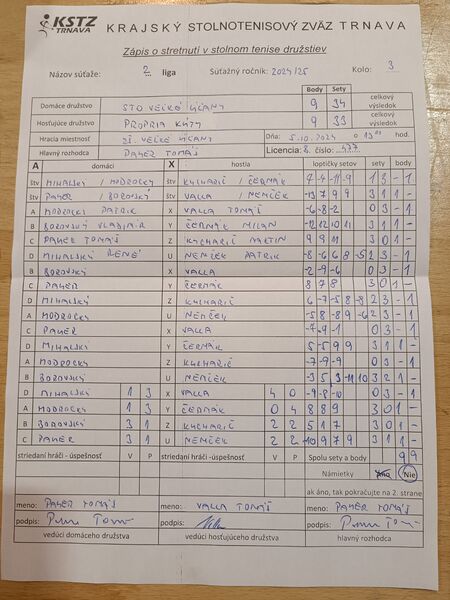 KSTZ TRNAVA KRAJSKÝ STOLNOTENISOVÝ ZVÄZ TRNAVA
Zápis o stretnutí v stolnom tenise družstiev
Názov súťaže: 2. liga Súťažný ročník: 2024/25 Kolo: 3
Body Sety
Domáce družstvo STO VEĽKÉ ÚĽANY 9 34 celkový výsledok
Hosťujúce družstvo PROPRIA KÚTY 9 33 celkový výsledok
Hracia miestnosť ZŠ VEĽKÉ ÚĽANY Dňa: 5.10.2024 o hod.
Hlavný rozhodca PAHER TOMÁŠ Licencia: číslo: 477
A domáci X hostia loptičky setov sety body
štv MIHALSKÝ / MODROCKÝ štv KUCHARIČ / ČERNÁK 1 3 - 1
štv PAHER / BOROVSKÝ štv VALLA / NEMČEK -13 7 9 9 3 1 1 -
A MODROCKÝ PATRIK X VALLA TOMÁŠ -6 -8 -2 0 3 - 1
B BOROVSKÝ VLADIMÍR Y ČERNÁK MILAN -12 12 10 11 3 1 1 -
C PAHER TOMÁŠ Z KUCHARIČ MARTIN 9 9 11 3 0 1 -
D MIHALSKÝ RENÉ U NEMČEK PATRIK -8 -6 6 8 -5 2 3 - 1
B BOROVSKÝ X VALLA -2 -9 -6 0 3 - 1
C PAHER Y ČERNÁK 8 7 8 3 0 1 -
D MIHALSKÝ Z KUCHARIČ 6 -7 -5 8 -8 2 3 - 1
A MODROCKÝ U NEMČEK -5 8 -8 9 -6 2 3 - 1
C PAHER X VALLA -7 -9 -1 0 3 - 1
D MIHALSKÝ Y ČERNÁK 5 -5 9 9 3 1 1 -
A MODROCKÝ Z KUCHARIČ -7 -9 -9 0 3 - 1
B BOROVSKÝ U NEMČEK -3 5 3 -11 10 3 2 1 -
D MIHALSKÝ 1 3 X VALLA 4 0 -9 -8 -10 0 3 - 1
A MODROCKÝ 1 3 Y ČERNÁK 0 4 8 8 9 3 0 1 -
B BOROVSKÝ 3 1 Z KUCHARIČ 2 2 5 17 3 0 1 -
C PAHER 3 1 U NEMČEK 2 2 -10 9 7 9 3 1 1 -
striedaní hráči - úspešnosť V P striedaní hráči - úspešnosť V P Spolu sety a body 9 9
Námietky Áno Nie
ak áno, tak pokračujte na 2. strane
meno: PAHER TOMÁŠ meno: VALLA TOMÁŠ meno: PAHER TOMÁŠ
podpis: podpis: podpis:
vedúci domáceho družstva vedúci hosťujúceho družstva hlavný rozhodca